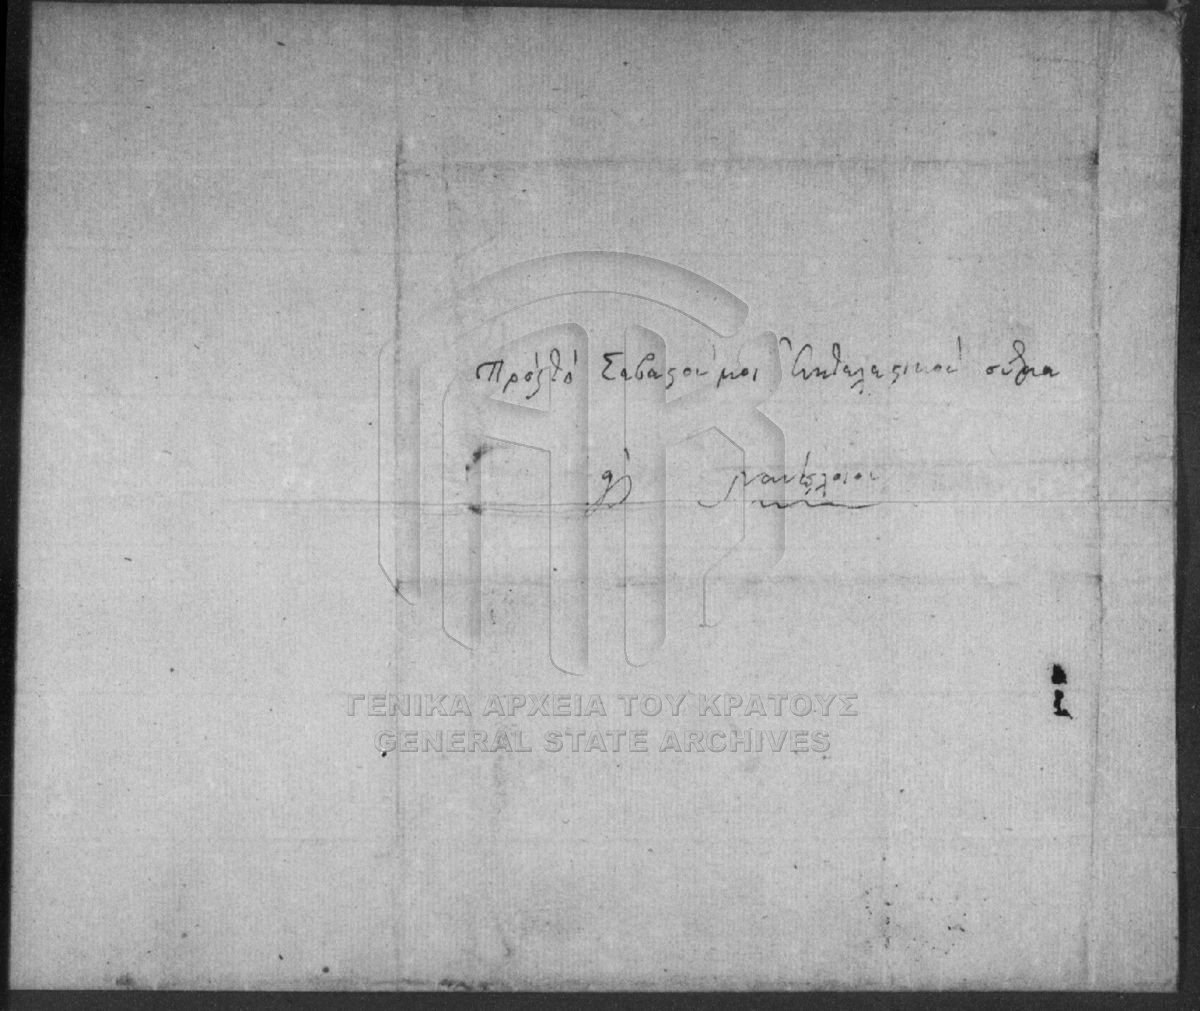 Πρός τό Σεβαστόν μοι Ἐκτελεστικόν σῶμα
εἰς Ναύπλοιον
ΓΕΝΙΚΑ ΑΡΧΕΙΑ ΤΟΥ ΚΡΑΤΟΥΣ
GENERAL STATE ARCHIVES